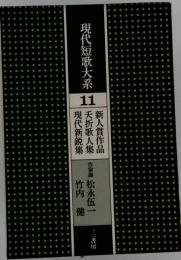 現代短歌大系
11
新人賞作品
夭折歌人集
現代新鋭集
松永伍一
竹内健
三一書房